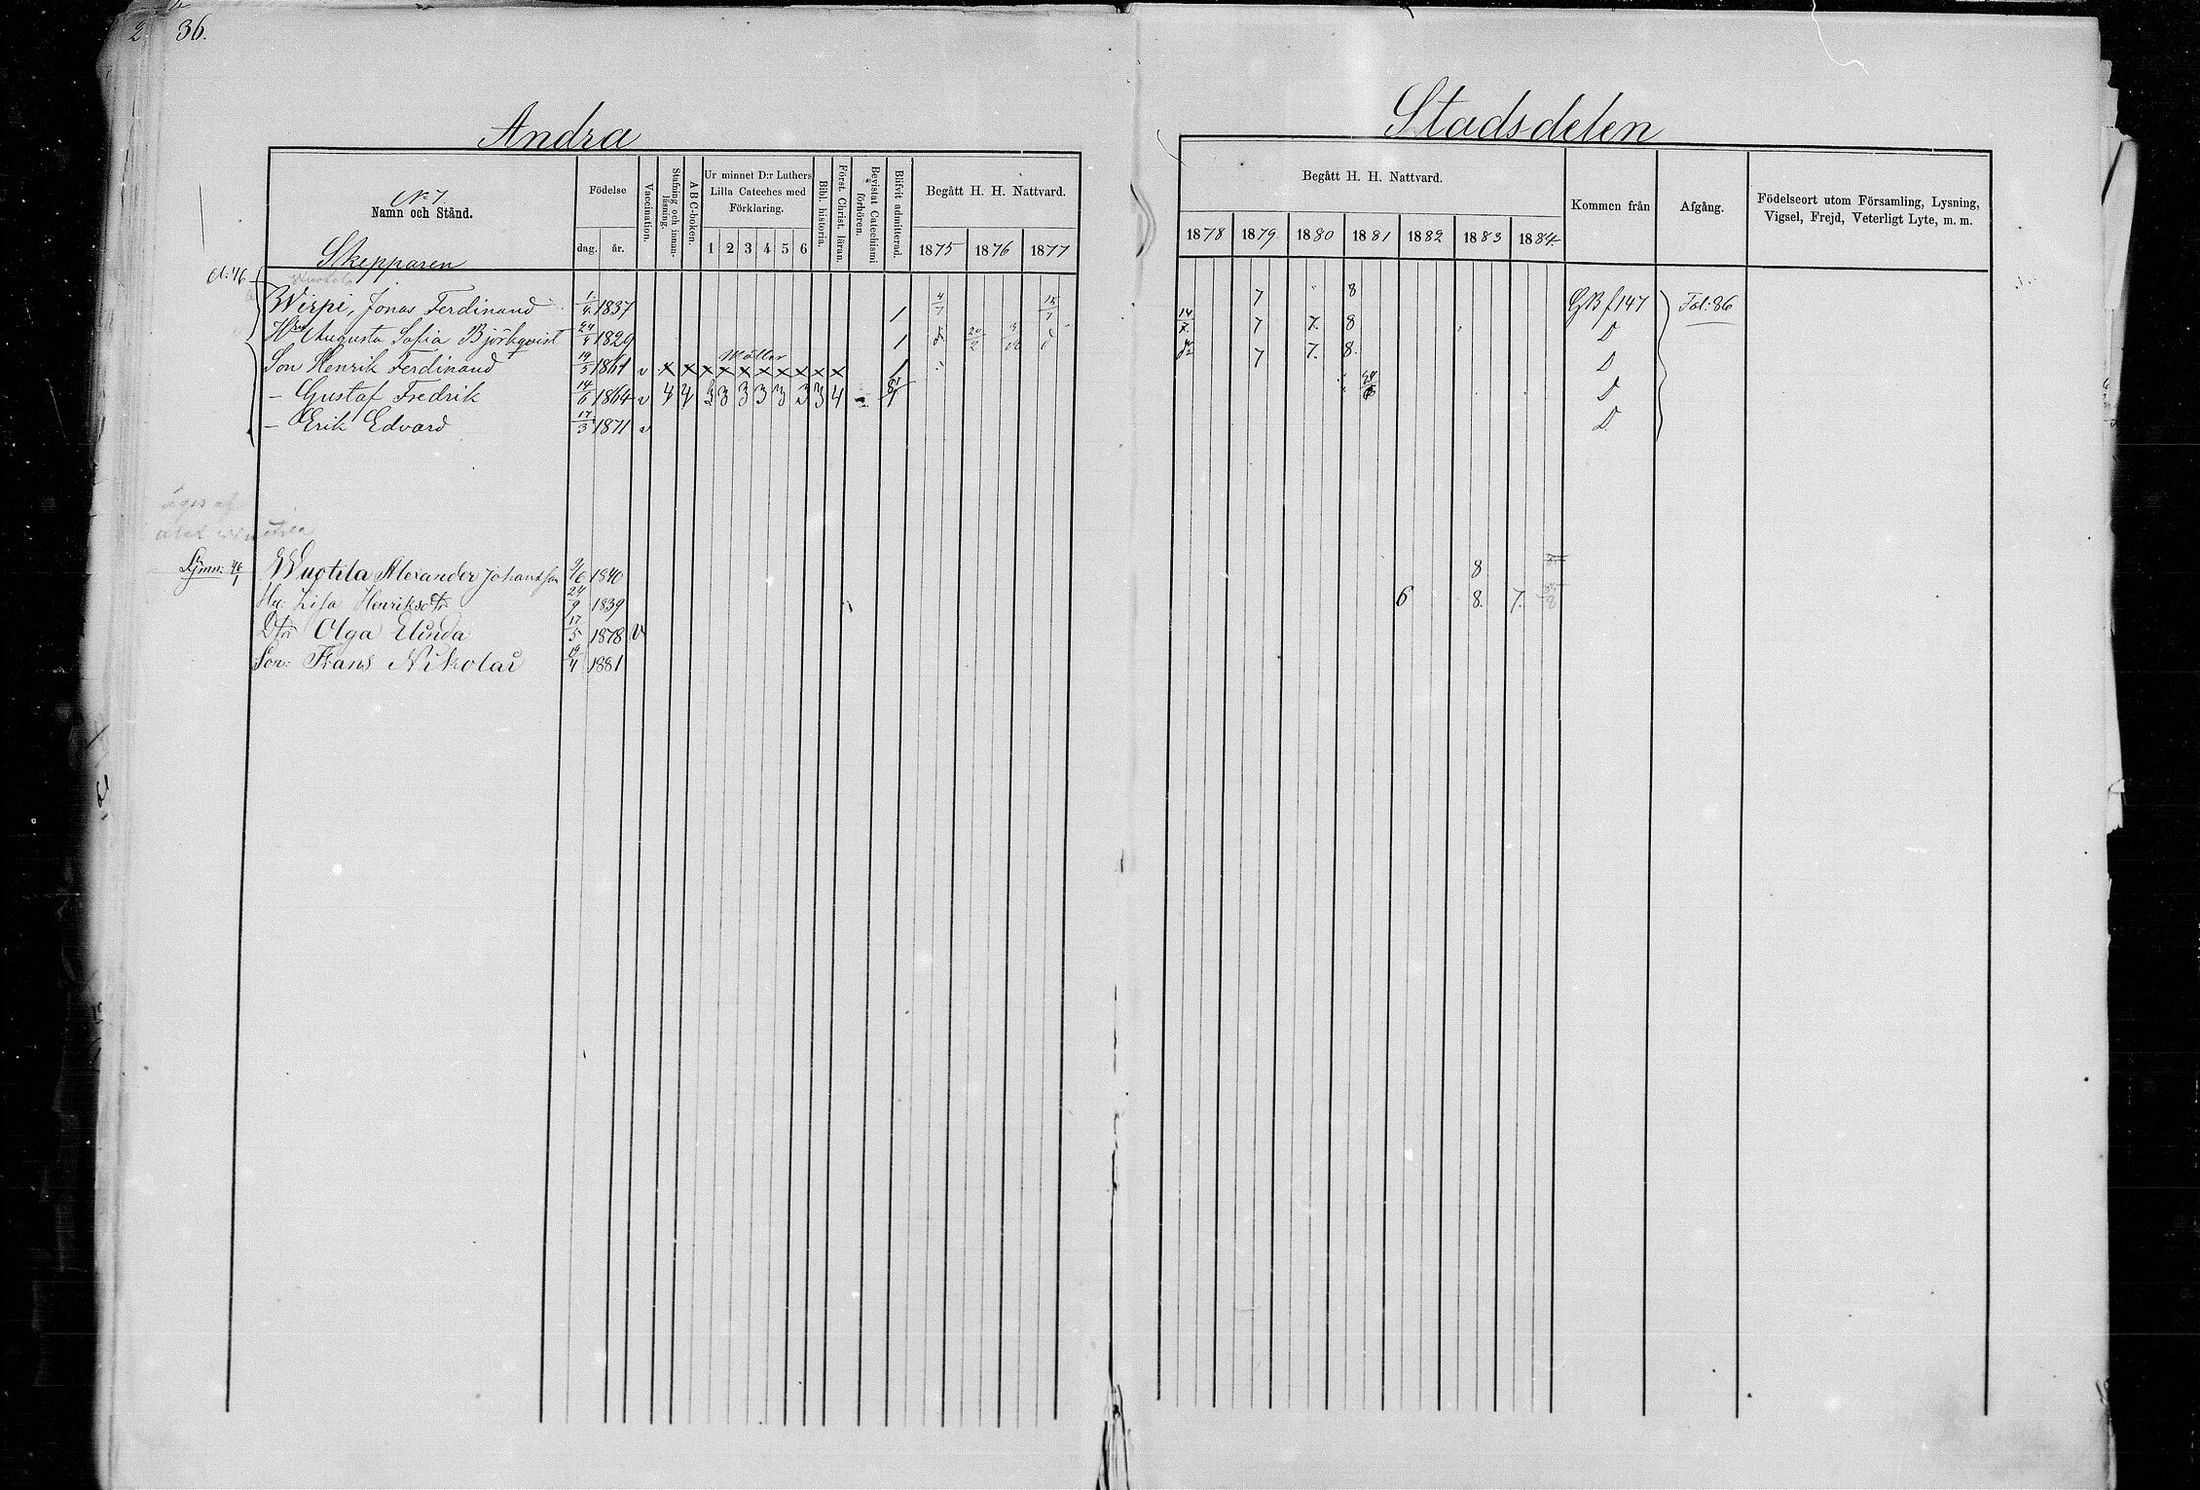 36.
Andra
Stadsdelen
No 7.
Namn och Stånd.
Födelse
dag. år.
Vaccination.
Stafning och innanläsning.
A B C-boken.
Ur minnet D:r Luthers Lilla Cateches med Förklaring.
1 2 3 4 5 6
Bibl. historia.
Först. Christ. läran.
Bevistat Catechismi förhören.
Blifvit admitterad.
Begått H. H. Nattvard.
1875 1876 1877
Begått H. H. Nattvard.
1878 1879 1880 1881 1882 1883 1884
Kommen från
Afgång.
Födelseort utom Församling, Lysning, Vigsel, Frejd, Veterligt Lyte, m. m.
Skepparen
Wirpi, Jonas Ferdinand 1837 1 7 8 GB f 147 Fol: 86
Augusta Sofia Björkqvist 24/4 1829 1 7 7. 8 D
Son Henrik Ferdinand 19/5 1861 v x x x x x x x x x x 1 7 7. 8. D
– Gustaf Fredrik 14/6 1864 v 4 4 3 3 3 3 3 3 3 4 D
– Erik Edvard 17/3 1871 v D.
Wuotila Alexander Johansson 9/6 1840 8
Hu. Lisa Henriksdtr 24/9 1839 6 8. 7.
Dtr Olga Elinda 17/5 1878 v
Son: Frans Nikolai 19/4 1881